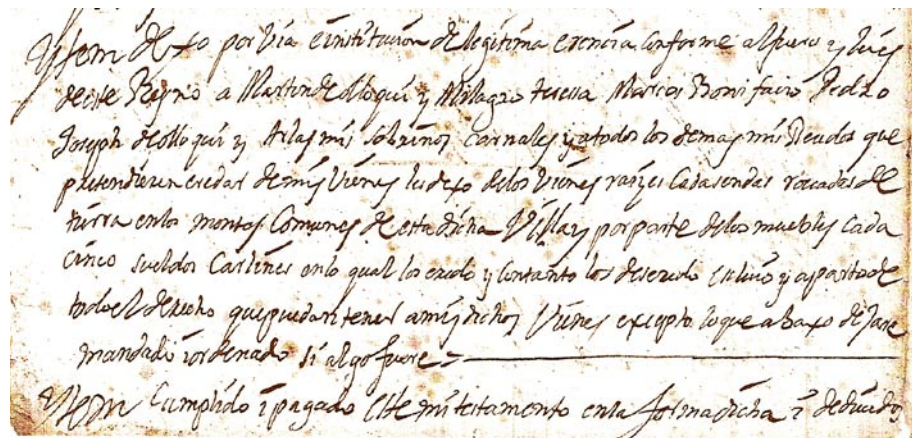 Ytem dexo por via e institucion de legitima erencia conforme al fuero y leies
de este Reyno a Martin de olloqui y Milagro teresa Marcos Bonifacio Pedro
Joseph de olloqui y Arlas mis sobrinos carnales y a todos los demas mis deudos que
pretendieren eredar de mis vienes les dexo de los vienes raizes cada sendas rovadas de
tierra en los montes comunes de esta dicha Villa y por parte de los muebles cada
cinco sueldos carlines en lo qual los eredo y con tanto los deseredo escluio y aparto de
todo el derecho que puedan tener a mis dichos vienes excepto lo que abaxo dejare
mandado i ordenado si algo fuere
Ytem cumplido i pagado este mi testamento en la forma dicha i